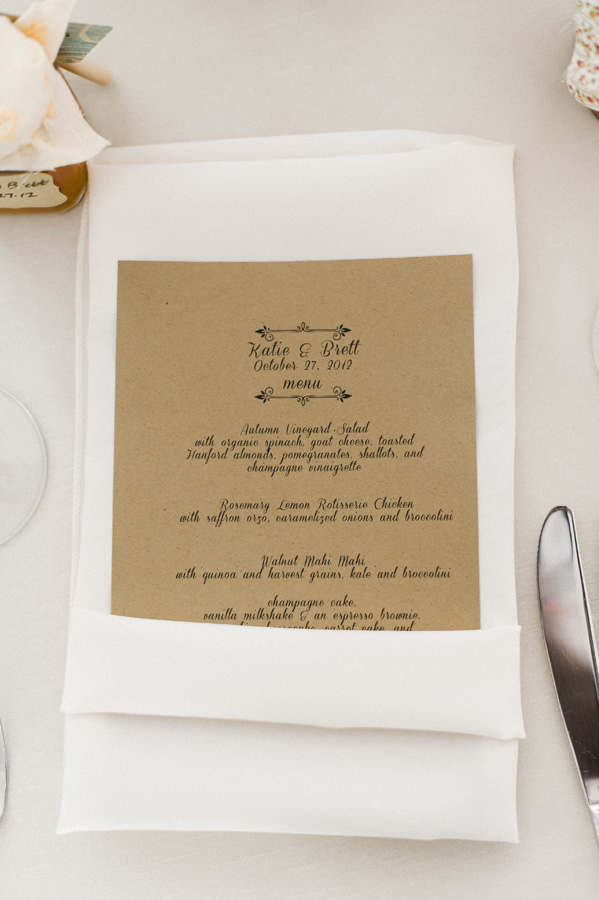 Katie & Brett
October 27, 2012
menu
Autumn Vineyard Salad
with organic spinach, goat cheese, toasted
Hanford almonds, pomegranates, shallots, and
champagne vinaigrette
Rosemary Lemon Rotisserie Chicken
with saffron orzo, caramelized onions and broccolini
Walnut Mahi Mahi
with quinoa and harvest grains, kale and broccolini
champagne cake,
vanilla milkshake & an espresso brownie,
carrot cake, and